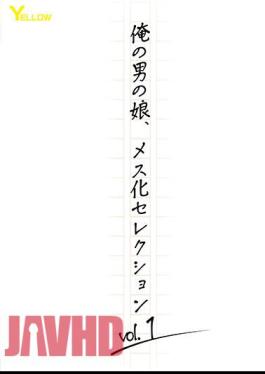 YELLOW
俺の男の娘、メス化セレクション
vol.1
JAVHD